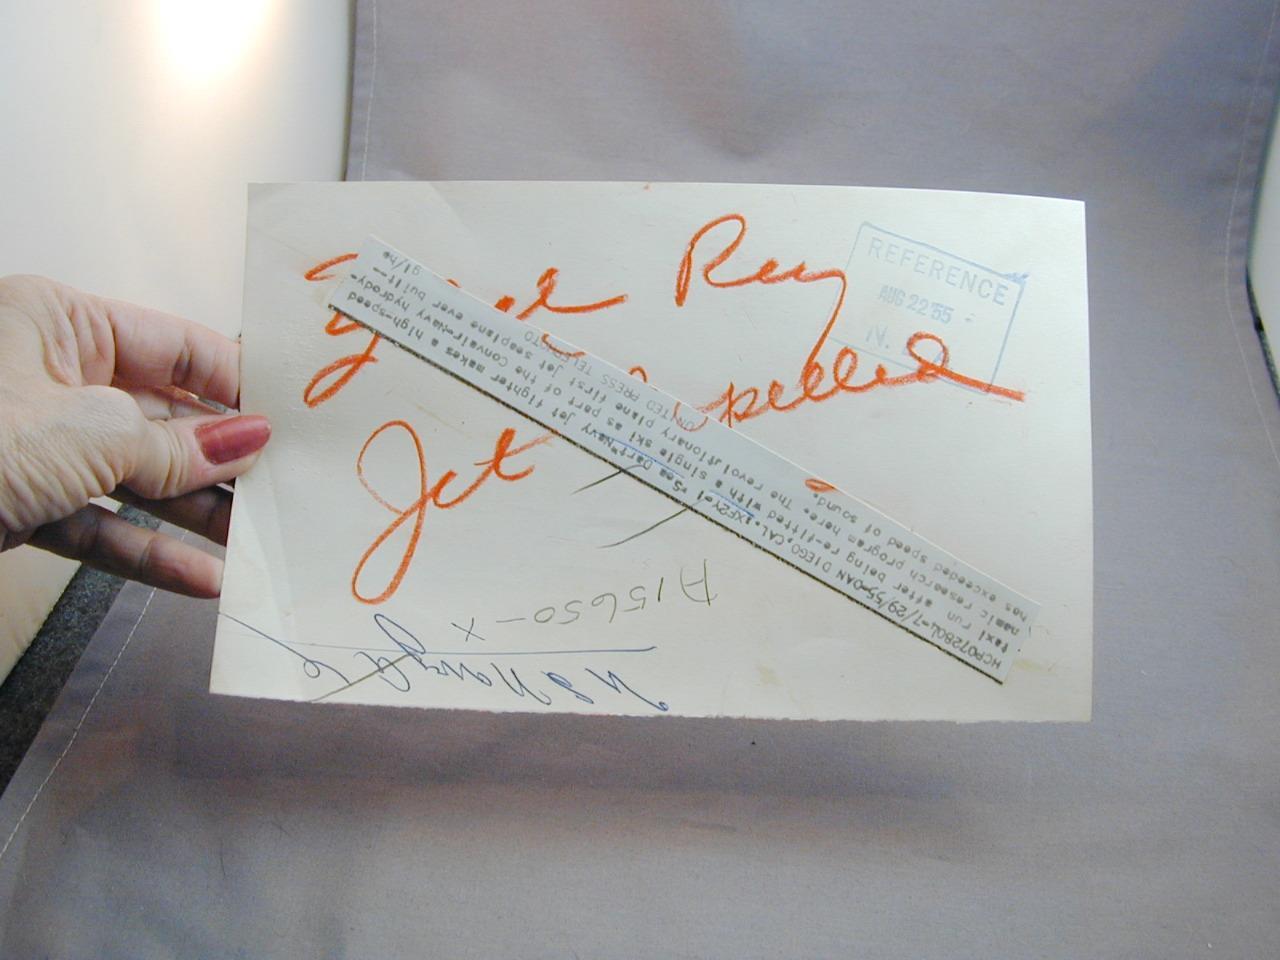 Ray
Jet
REFERENCE
AUG 22 '55
N.
HCP072804-7/29/55-OAN DIEGO, CAL.:XF2Y-1 "Sea Dart" Navy jet fighter makes a high-speed
taxi run after being re-fitted with a single ski as part of the Convair-Navy hydrody-
namic research program here. The revolutionary plane first jet seaplane ever built--
has exceeded speed of sound. UNITED PRESS TELEPHOTO gl/he
A15650-X
U S Navy